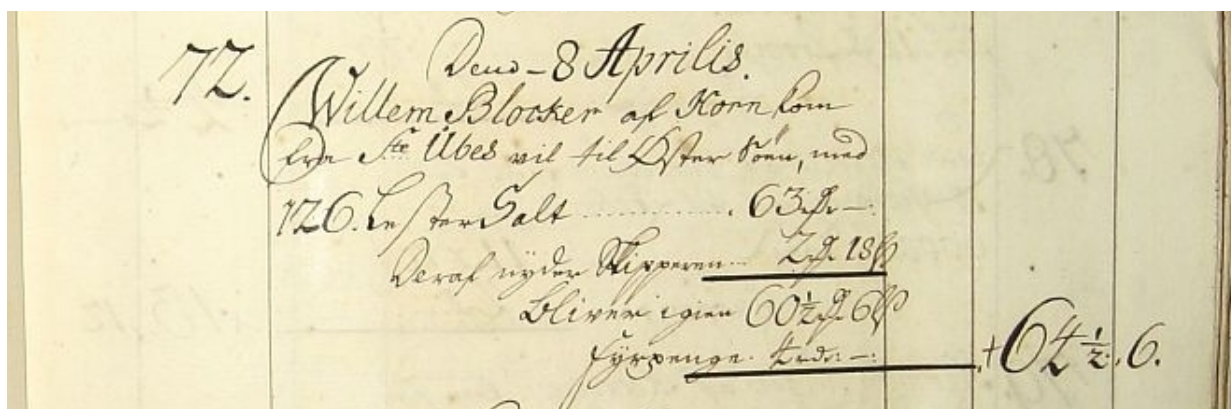 72.
Dend - 8 Aprilis.
Willem Blocker af Horn kom
fra Ste Übes vil til Øster Söen, med
126. Lester Salt ............ 63 Rd —:
Deraf nyder Skipperen... 2 Rd 18 ß
bliver igien 60 1/2 Rd 6 ß
fyrpenge. 4 rdr: —:
+ 64 1/2. 6.